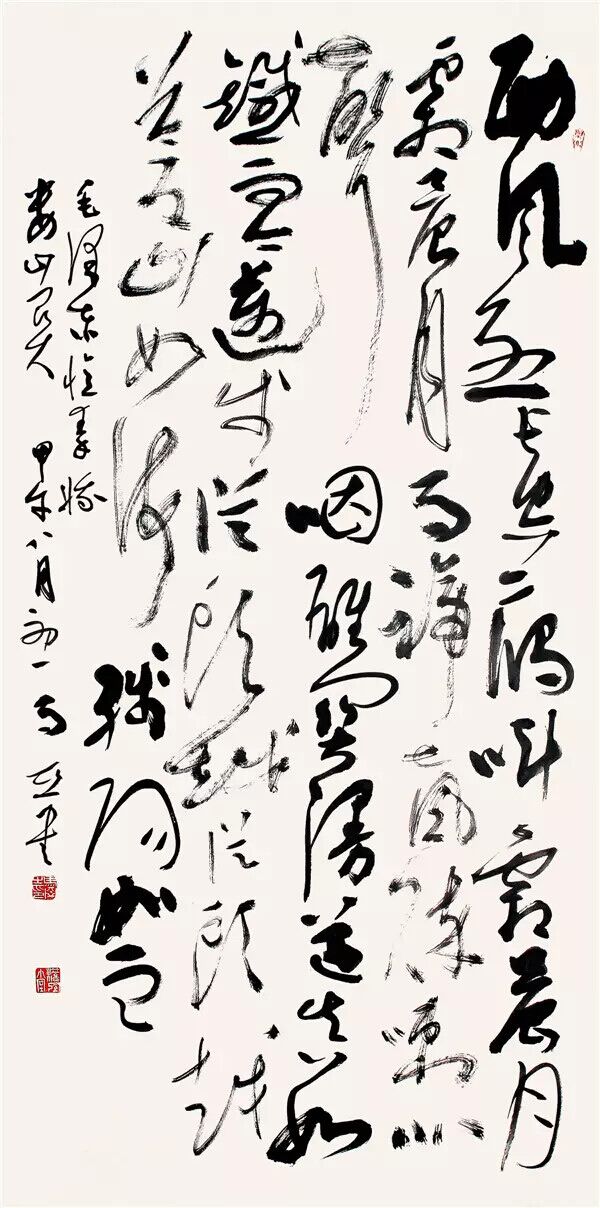 西风烈长空雁叫霜晨月
霜晨月马蹄声碎喇叭
声咽雄关漫道真如
鐵而今迈步从头越从头越
苍山如海残阳如血
毛泽东忆秦娥
娄山关 甲午八月初一 马亚书